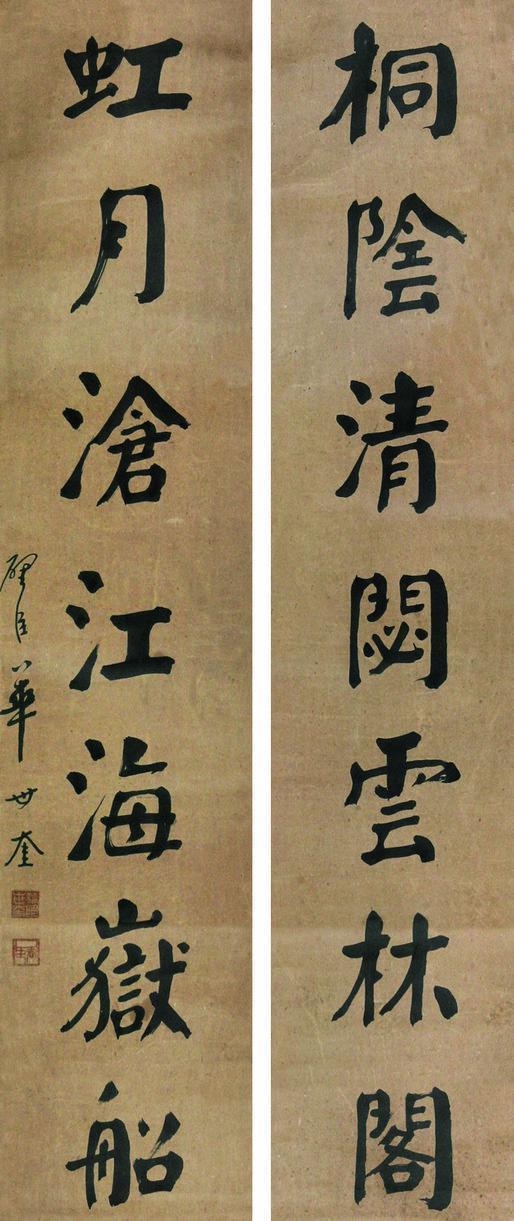 桐陰清閟雲林閣
虹月滄江海嶽船
璧臣華世奎